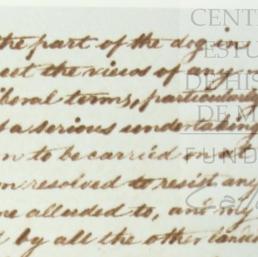 the part of the dog in
eet the views of any
iberal terms, particularly
t a serious undertaking
n to be carried out
on resolved to resist any
ne alluded to, and my
d by all the other
CENT
ESTU
DE HIS
DE M
FUND